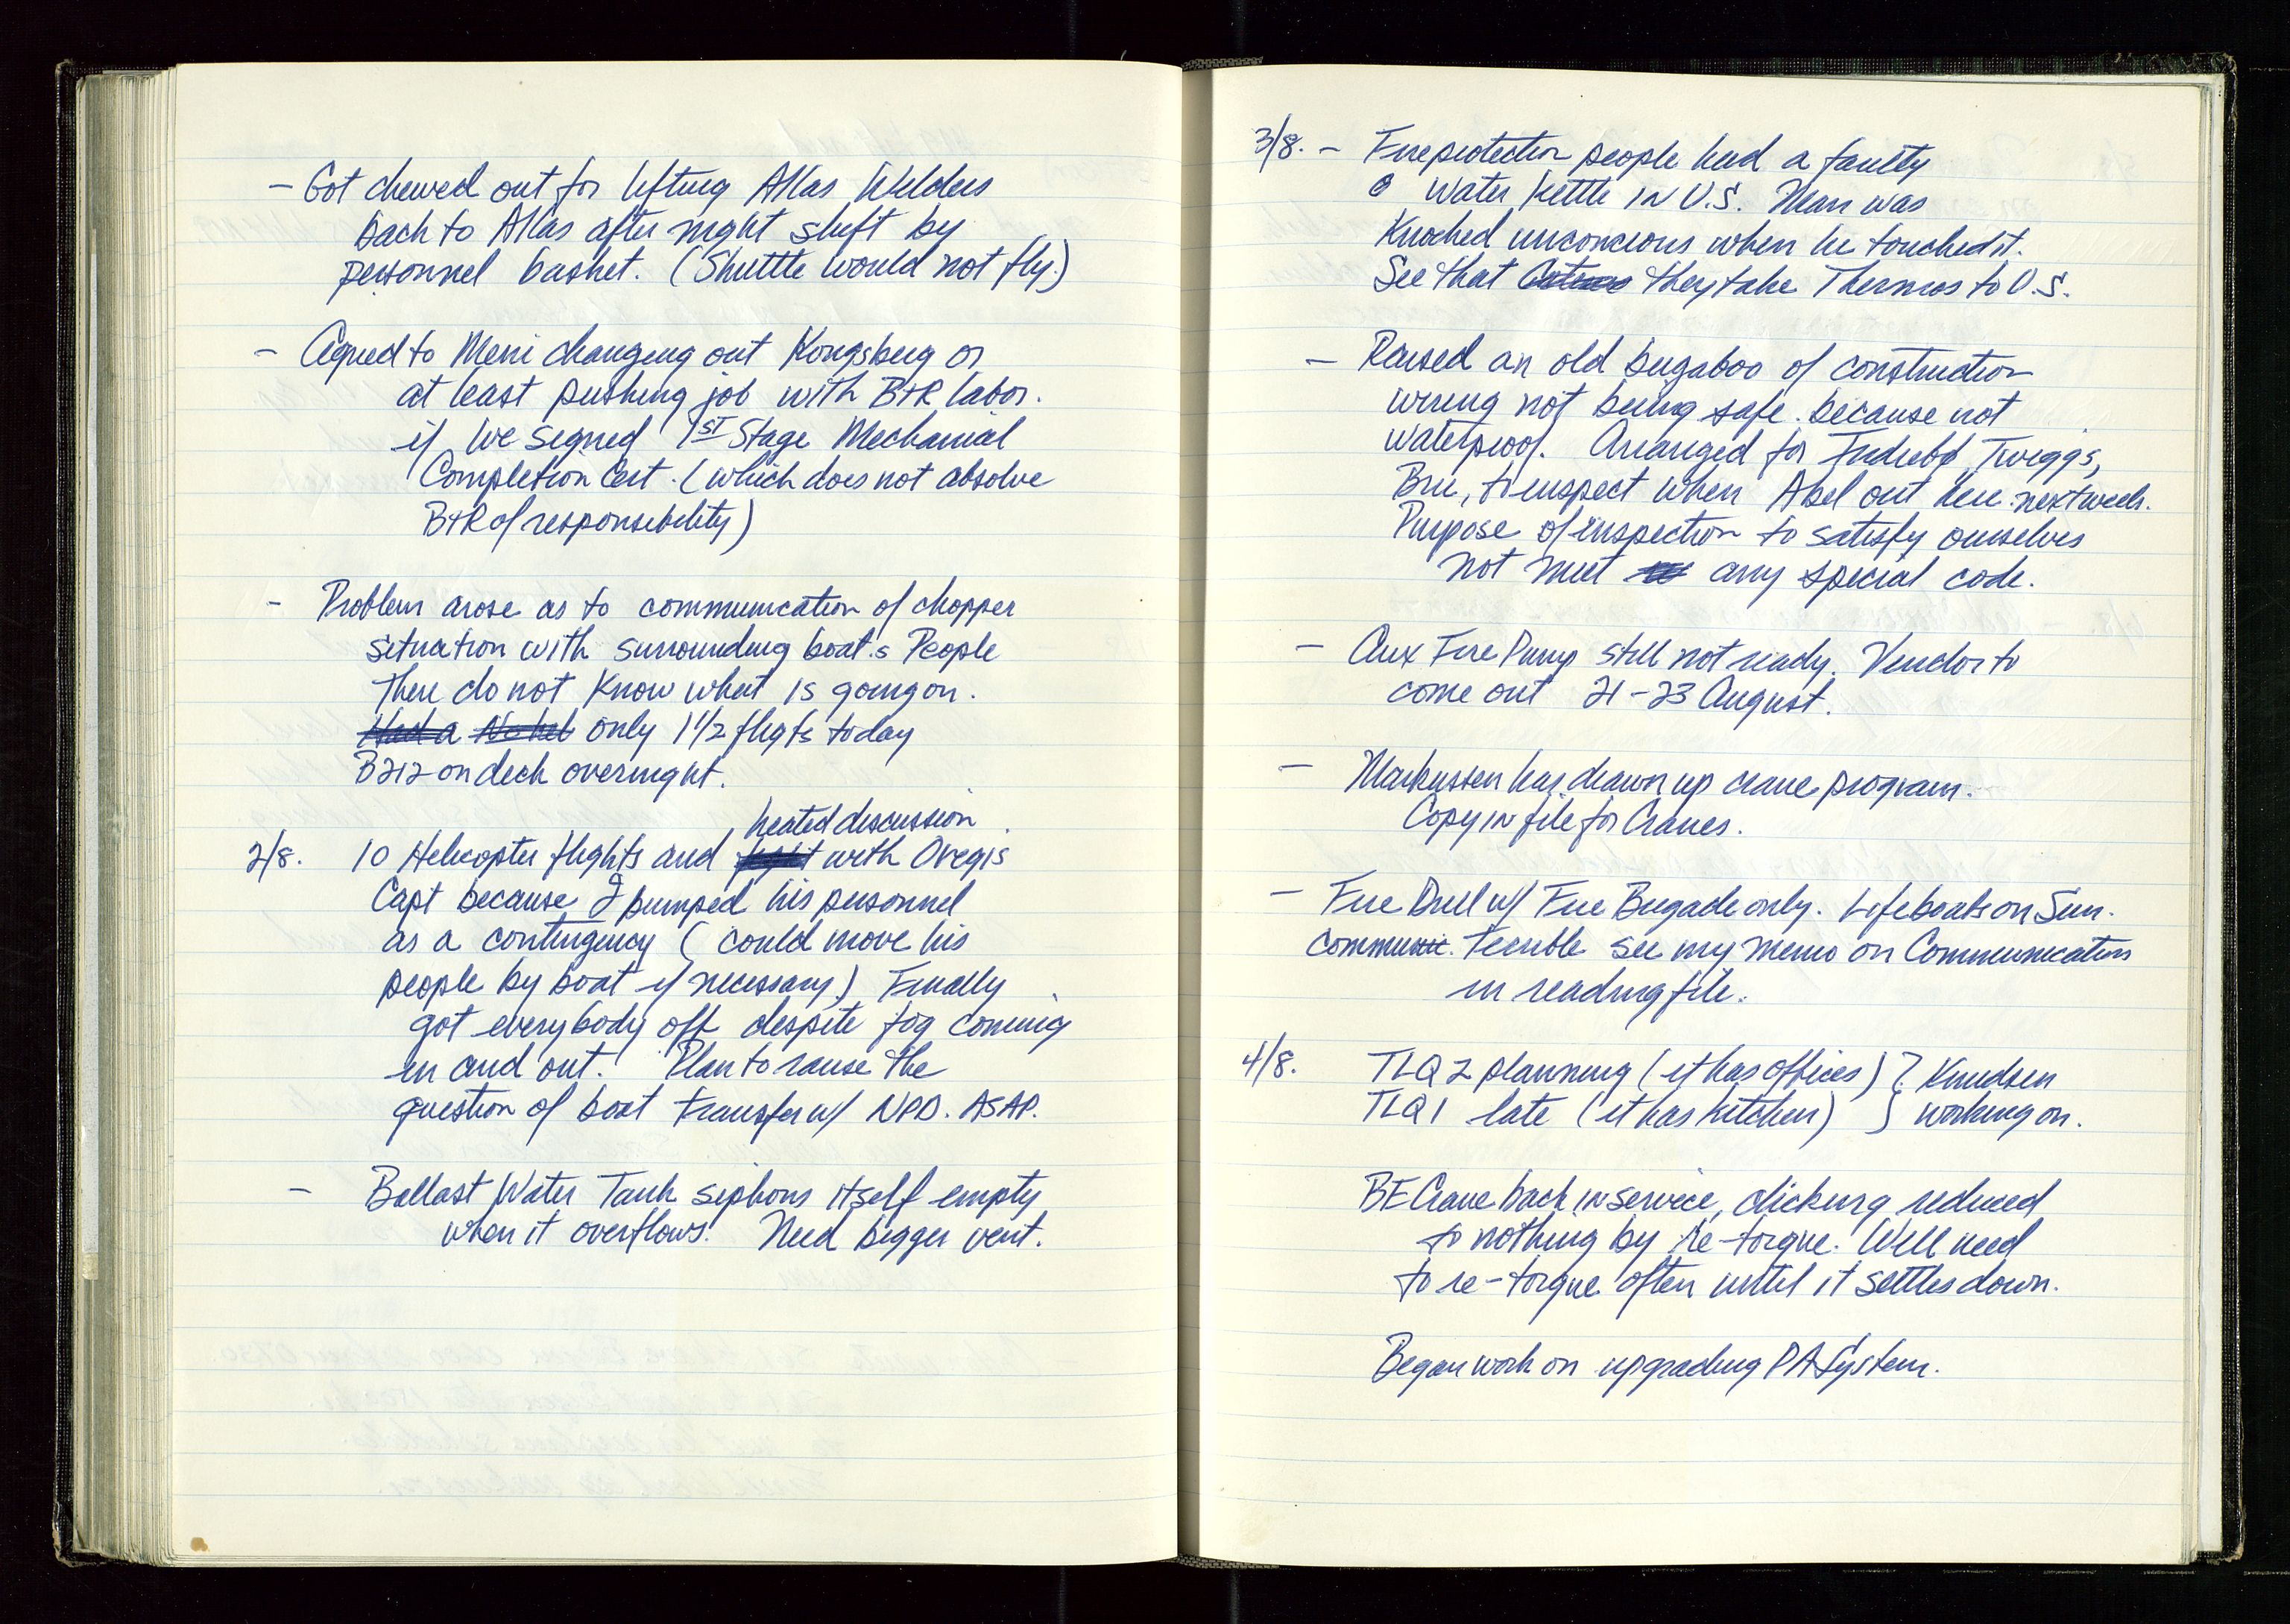 - Got chewed out for lifting Atlas Welders
back to Atlas after night shift by
personnel basket. (Shuttle would not fly.)
- Agreed to Meni changing out Kongsberg or
at least pushing job with B+R labor.
if we signed 1ST Stage Mechanical
Completion Cert. (which does not absolve
B+R of responsibility)
- Problem arose as to communication of chopper
situation with surrounding boat.s People
there do not know what is going on.
Had a No hel only 1 1/2 fligts today
B212 on deck overnight.
heated discussion
2/8. 10 Helicopter flights and fight with Oregis
Capt because I bumped his personnel
as a contingency (could move his
people by boat if necessary) Finally
got everybody off despite fog coming
in and out. Plan to raise the
question of boat transfer w/ NPD. ASAP.
- Ballast Water Tank siphons itself empty
when it overflows. Need bigger vent.
3/8. - Fireprotection people had a faulty
Water Kettle in U.S. Man was
Knocked unconcious when he touched it.
See that they take Thermos to U.S.
- Raised an old bugaboo of construction
wiring not being safe. because not
waterproof. Arranged for Indrebø, Twiggs,
Bru, to inspect when Abel out here next week.
Purpose of inspection to satisfy ourselves
not meet any special code.
- Aux Fire Pump still not ready. Vendor to
come out 21-23 August.
- Markussen has drawn up crane program.
Copy in file for Cranes.
- Fire Drill w/ Fire Brigade only. Lifeboats on Sun.
communic. Terrible see my memo on Communication
in reading file.
4/8. TLQ 2 planning (it has offices) } Knudsen
TLQ 1 late (it has kitchen) } working on.
BE Crane back in service, clicking reduced
to nothing by re-torque. Will need
to re-torque often until it settles down.
Began work on upgrading PA System.